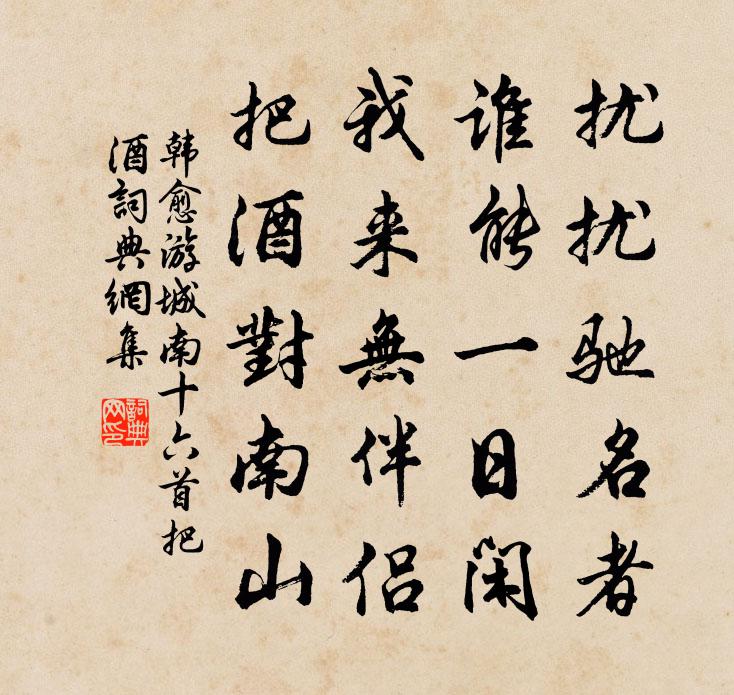 扰扰驰名者
谁能一日闲
我来無伴侣
把酒對南山
韩愈游城南十六首把
酒詞典網集
詞典网印